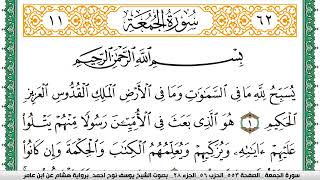 ٦٢ سُورَةُ الجُمُعَةِ ١١
بِسْمِ اللَّهِ الرَّحْمَٰنِ الرَّحِيمِ
يُسَبِّحُ لِلَّهِ مَا فِي السَّمَٰوَٰتِ وَمَا فِي الْأَرْضِ الْمَلِكِ الْقُدُّوسِ الْعَزِيزِ
الْحَكِيمِ ۝ هُوَ الَّذِي بَعَثَ فِي الْأُمِّيِّينَ رَسُولًا مِّنْهُمْ يَتْلُوا
عَلَيْهِمْ ءَايَٰتِهِۦ وَيُزَكِّيهِمْ وَيُعَلِّمُهُمُ الْكِتَٰبَ وَالْحِكْمَةَ وَإِن كَانُوا
سورة الجمعة الصفحة ٥٥٣ الحزب ٥٦ الجزء ٢٨ بصوت الشيخ يوسف نوح احمد برواية هشام عن ابن عامر